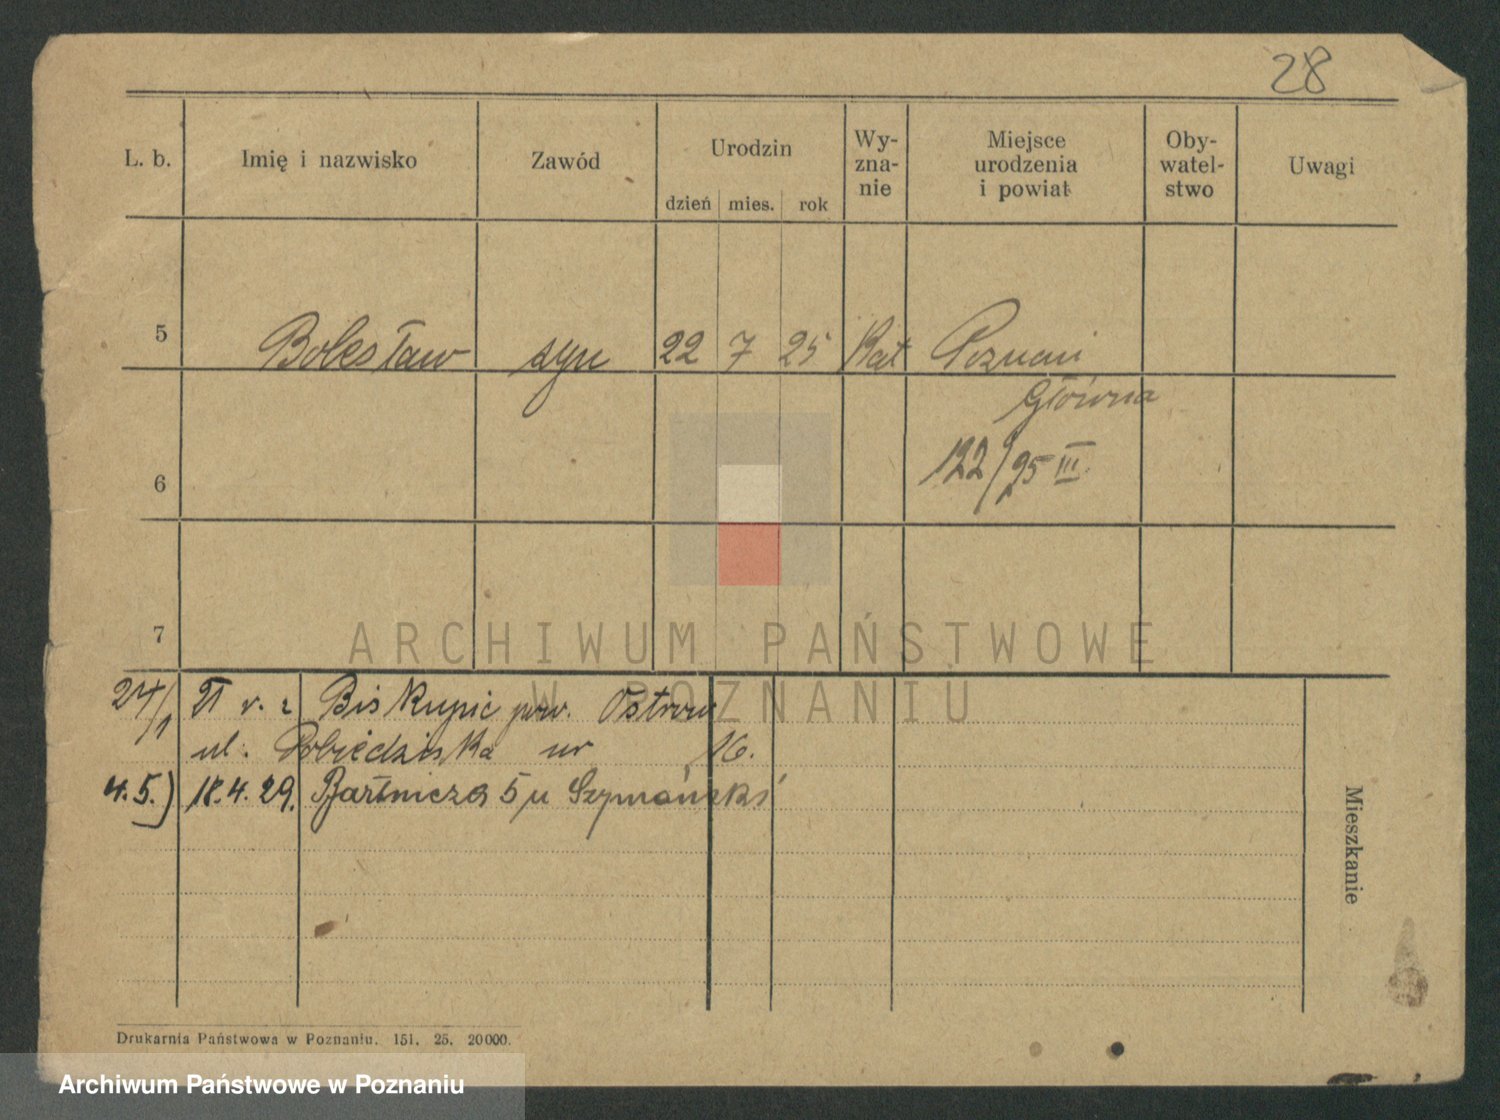 28
L. b. Imię i nazwisko Zawód Urodzin Wy-zna-nie Miejsce urodzenia i powiat Oby-watel-stwo Uwagi
dzień mies. rok
5 Bolesław syn 22 7 25 Kat Poznań
Główna
6 122/25 III
7
ARCHIWUM PAŃSTWOWE
W POZNANIU
24/1 v. Biskupic pow. Ostrow
ul. Pobiedziska nr 16.
4.5.) 18.4.29. Bartnicza 5 u Szymański
Mieszkanie
Drukarnia Państwowa w Poznaniu. 151. 25. 20000.
Archiwum Państwowe w Poznaniu